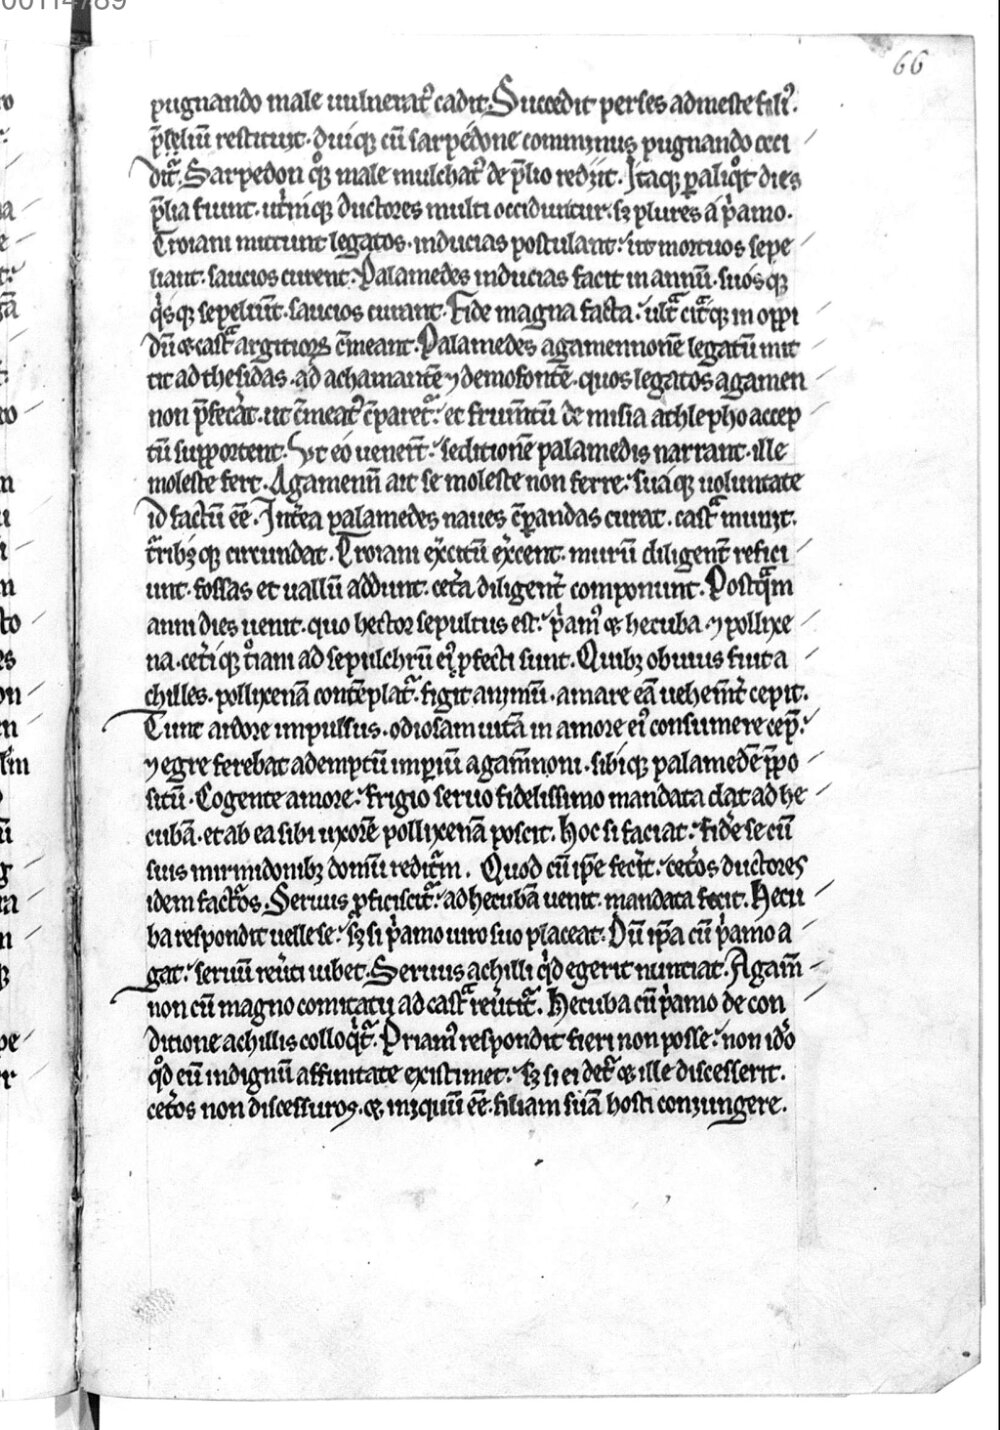 00114789
66
pugnando male uulnerat᷒ cadit. Succedit perses admeste fili᷒.
p̄seliū restituit. diuiq; cū sarpedone comminus pugnando occi
dit᷑. Sarpedon qͦq; male mulchat᷒ de p̄lio rediit. Itaq; ꝑ aliqͦt dies
p̄lia fiunt. ut̾niq; ductores multi occiduntur. sꝫ plures a pͥamo.
Troiani mittunt legatos. inducias postulant: ut mortuos sepe
liant. saucios curent. Palamedes inducias facit in annū. suos q;
qͥsq; sepeliūt. saucios curant. Fide magna facta: ultͣ citͣq; in oppi
dū ⁊ castͣ argiuoꝝ c̄meant. Palamedes agamennonē legatū mit
tit ad thesidas. ad achamantē ⁊ demofontē. quos legatos agamen
non p̄fec̾at. ut c̄meat᷒ c̄paret᷑: et frum̄tū de misia a thlepho accep
tū supportent. Ut eo uener̄t: seditionē palamedis narrant. ille
moleste fert. Agamenn̄ ait se moleste non ferre: sua q; uoluntate
id factū eē. Int̾ea palamedes naues c̄parandas curat. castͣ munit.
t̾ribꝫ q; circundat. Troiani ex̾citū ex̾cent. murū diligent̾ refici
unt. fossas et uallū addunt. cet̾a diligent̾ componunt. Postqͣm
anni dies uenit. quo hector sepultus est: pͥam᷒ ⁊ hecuba ⁊ pollixe
na. cet̾iq; tͦiani ad sepulchrū ei᷒ ꝓfecti sunt. Quibꝫ obuius fuit a
chilles. pollixenā contēplat᷑. figit animū. amare eā uehem̄t̾ cepit.
Tunc ardore impulsus. odiosam uitā in amore ei᷒ consumere cep̄:
⁊ egre ferebat ademptū imꝑiū agam̄noni. sibiq; palamedē p̄po
situ. Cogente amore: frigio seruo fidelissimo mandata dat ad he
cubā. et ab ea sibi uxorē pollixenā poscit. Hoc si faciat: fid̾e se cū
suis mirmidonibꝫ domū reditᷓm. Quod cū ip̄e fec̾it: cet̾os ductores
idem factͦos. Seruus ꝓficiscit᷑: ad hecubā uenit. mandata fecit. Hecu
ba respondit uelle se: sꝫ si pͥamo uiro suo placeat. Dū ip̄a cū pͥamo a
gat: seruū reu̾ti iubet. Seruus achilli qͥd egerit nunciat. Agam̄
non cū magno comitatu ad castͣ reu̾tit᷑. Hecuba cū pͥamo de con
ditione achillis colloqͥt᷑. Priam᷒ respondit fieri non posse: non idͦo
qͦd eū indignū affinitate existimet: sꝫ si ei det᷑ ⁊ ille discesserit.
cet̾os non discessuros. ⁊ iniquū eē. filiam suā hosti coniungere.